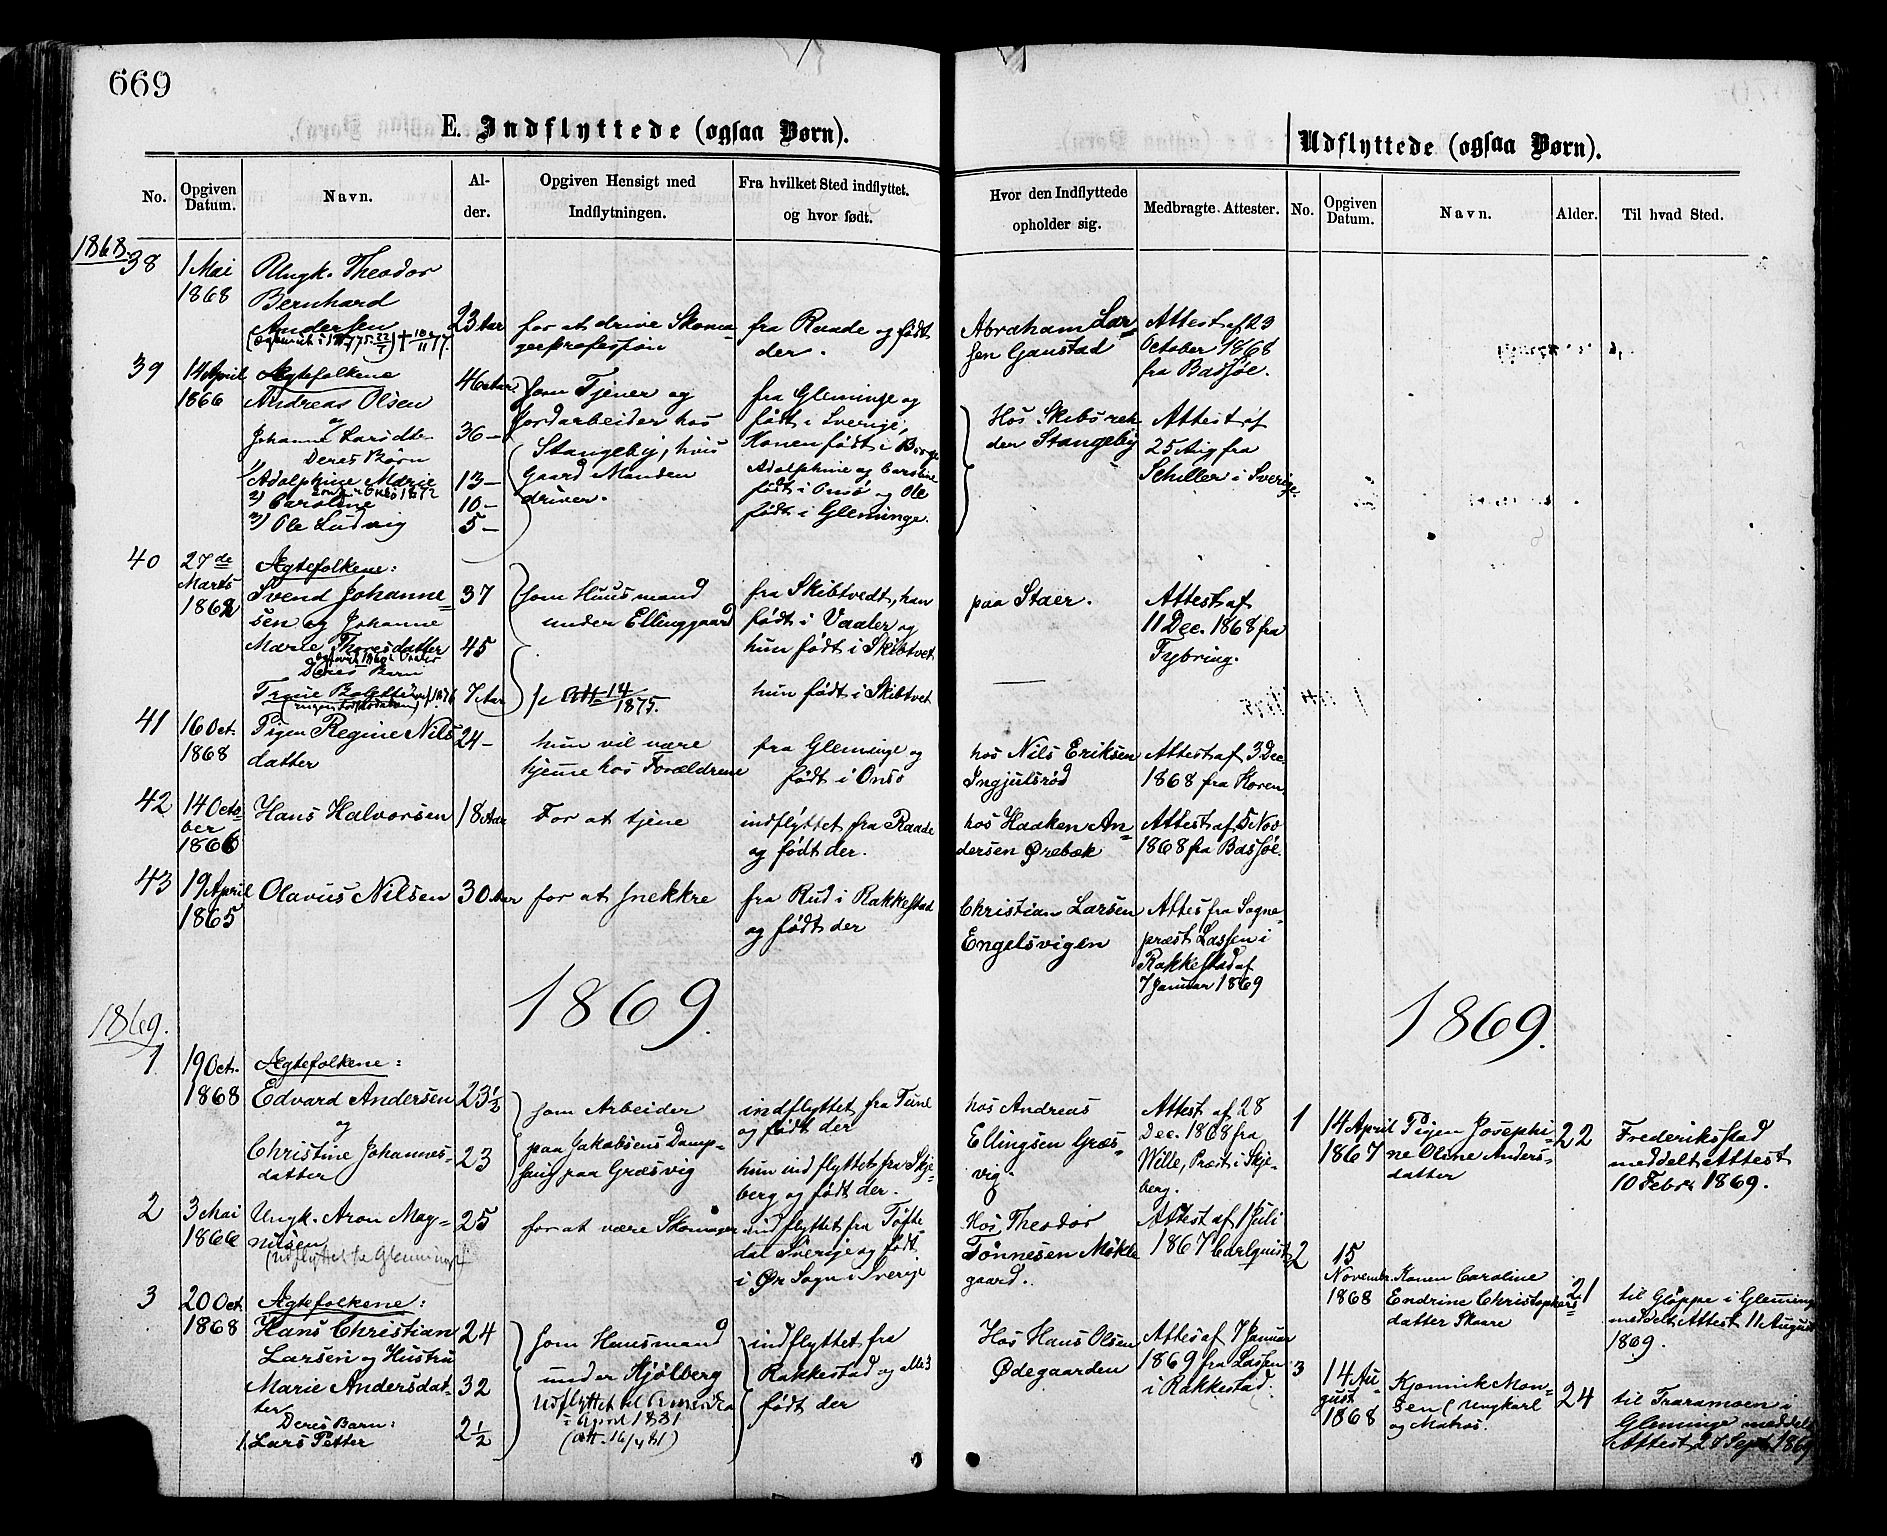 669
E. Indflyttede (ogsaa Børn).
No.
Opgiven Datum.
Navn.
Alder.
Opgiven Hensigt med Indflytningen.
Fra hvilket Sted indflyttet. og hvor født.
Hvor den Indflyttede opholder sig.
Medbragte Attester.
Udflyttede (ogsaa Børn).
No.
Opgiven Datum.
Navn.
Alder.
Til hvad Sted.
1868.
38
1 Mai
1868
Ungk. Theodor
Bernhard
Andersen
23 Aar
for at drive Skoma
gerprofession
fra Raade og født
der.
Abraham Lar
sen Gaustad
Attest af 23
October 1868
fra Bassøe.
39
14 April
1866
Ægtefolkene
Andreas Olsen
og
Johanne Larsdtr
Deres Børn
1) Adolphine Marie
2) Caroline
3) Ole Ludvig
46 Aar
36 -
13 -
10 -
5 -
som Tjener og
Jordarbeider hos
Stangeby, hvis
Gaard Manden
driver.
fra Gleminge og
født i Sverige,
Konen født i Borge
Adolphine og Caroline
født i Onsø og Ole
født i Gleminge.
Hos Skibsrehder
Stangeby
Attest af
25 Aug fra
Schiller i Sverige.
40
27de
Marts
1862
Ægtefolkene:
Svend Johanne=
sen og Johanne
Marie Thoresdatter
Deres Barn
37
45
7 Aar
som Huusmand
under Ellinggaard
Att 14/ 1875.
fra Skibtvedt, han
født i Vaaler og
hun født i Skibtvet
hun født i Skibtvet
paa Staer.
Attest af
11 Dec. 1868 fra
Fybring.
41
16 Oct.
1868
Pigen Regine Nils
datter
24 -
hun vil være
hjemme hos Forældrene
fra Gleminge og
født i Onsø
hos Nils Eriksen
Ingjulsrød
Attest af 3 Dec.
1868 fra Koren
42
14 Octo=
ber
1866
Hans Halvorsen
18 Aar
For at tjene
indflyttet fra Raade
og født der.
hos Haaken An=
dersen Ørebæk
Attest af 5 Nov
1868 fra Bassøe.
43
19 April
1865
Olavus Nilsen
30 Aar
for at snekkre
fra Rud i Rakkestad
og født der
Christian Larsen
Engelsvigen
Attes fra Sogne=
præst Lassen i
Rakkestad af
7 Januar 1869
1869.
1869.
1869.
1
19 Oct.
1868
Ægtefolkene:
Edvard Andersen
og
Christine Johannes=
datter
23 1/2
23
som Arbeider
paa Jakobsens Damp=
saug paa Græsvig
indflyttet fra Tune
og født der
hun indflyttet fra Skje=
berg og født der.
hos Andreas
Ellingsen Græs=
vig.
Attest af 28
Dec. 1868 fra
Wille, Præst i Skje=
berg.
2
3 Mai
1866
Ungk. Aron Mag=
nusen
(udflyttet til Glemminge)
25
for at være Skomager
indflyttet fra Töfte=
dal Sverige og født
i Ør Sogn i Sverige
Hos Theodor
Tønnesen Møkle
gaard.
Attest af 1 Juli
1867 Carlquist
3
20 Oct.
1868
Ægtefolkene:
Hans Christian
Larsen og Hustru
Marie Andersdat=
ter
Deres Barn:
1. Lars Petter
24
32
2 1/2
som Huusmand
under Hjølberg
Udflyttet til Amerika
i April 1881
(Att. 16/4 81)
indflyttet fra
Rakkestad og alle 3
født der
Hos Hans Olsen
Ødegaarden
Attes af 7 Januar
1869 fra Lassen
i Rakkestad.
1
14 April
1867
Pigen Josephi=
ne Oline Anders=
datter
22
Frederiksstad
meddelt Attest
10 Febr. 1869.
2
15
Novembr.
1868
Konen Caroline
Endrine Christophers
datter Skaare
21
til Gløppe i Gleminge
meddelt Attest 11 August
1869.
3
14 Au=
gust
1868
Kjønnik Mon=
sen (Ungkarl
og Matros.
24
til Traramoen i
Gleminge meddelt
Attest 27 Sept. 1869